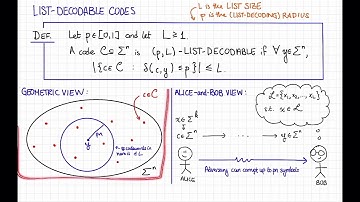 LIST-DECODABLE CODES
L is the LIST SIZE
p is the (LIST-DECODING) RADIUS
DEF. Let p∈[0,1] and let L≥1.
A code C⊆Σⁿ is (p,L)-LIST-DECODABLE if ∀y∈Σⁿ,
|{c∈C : δ(c,y)≤p}| ≤ L.
GEOMETRIC VIEW:
c∈C
pn
y
is ≤ L.
Σⁿ
ALICE-and-BOB VIEW:
L={x₁,x₂,...,x_L}
s.t. x∈L
x∈Σᵏ
c∈Σⁿ ... y∈Σⁿ
ALICE
Adversary can corrupt up to pn symbols
BOB